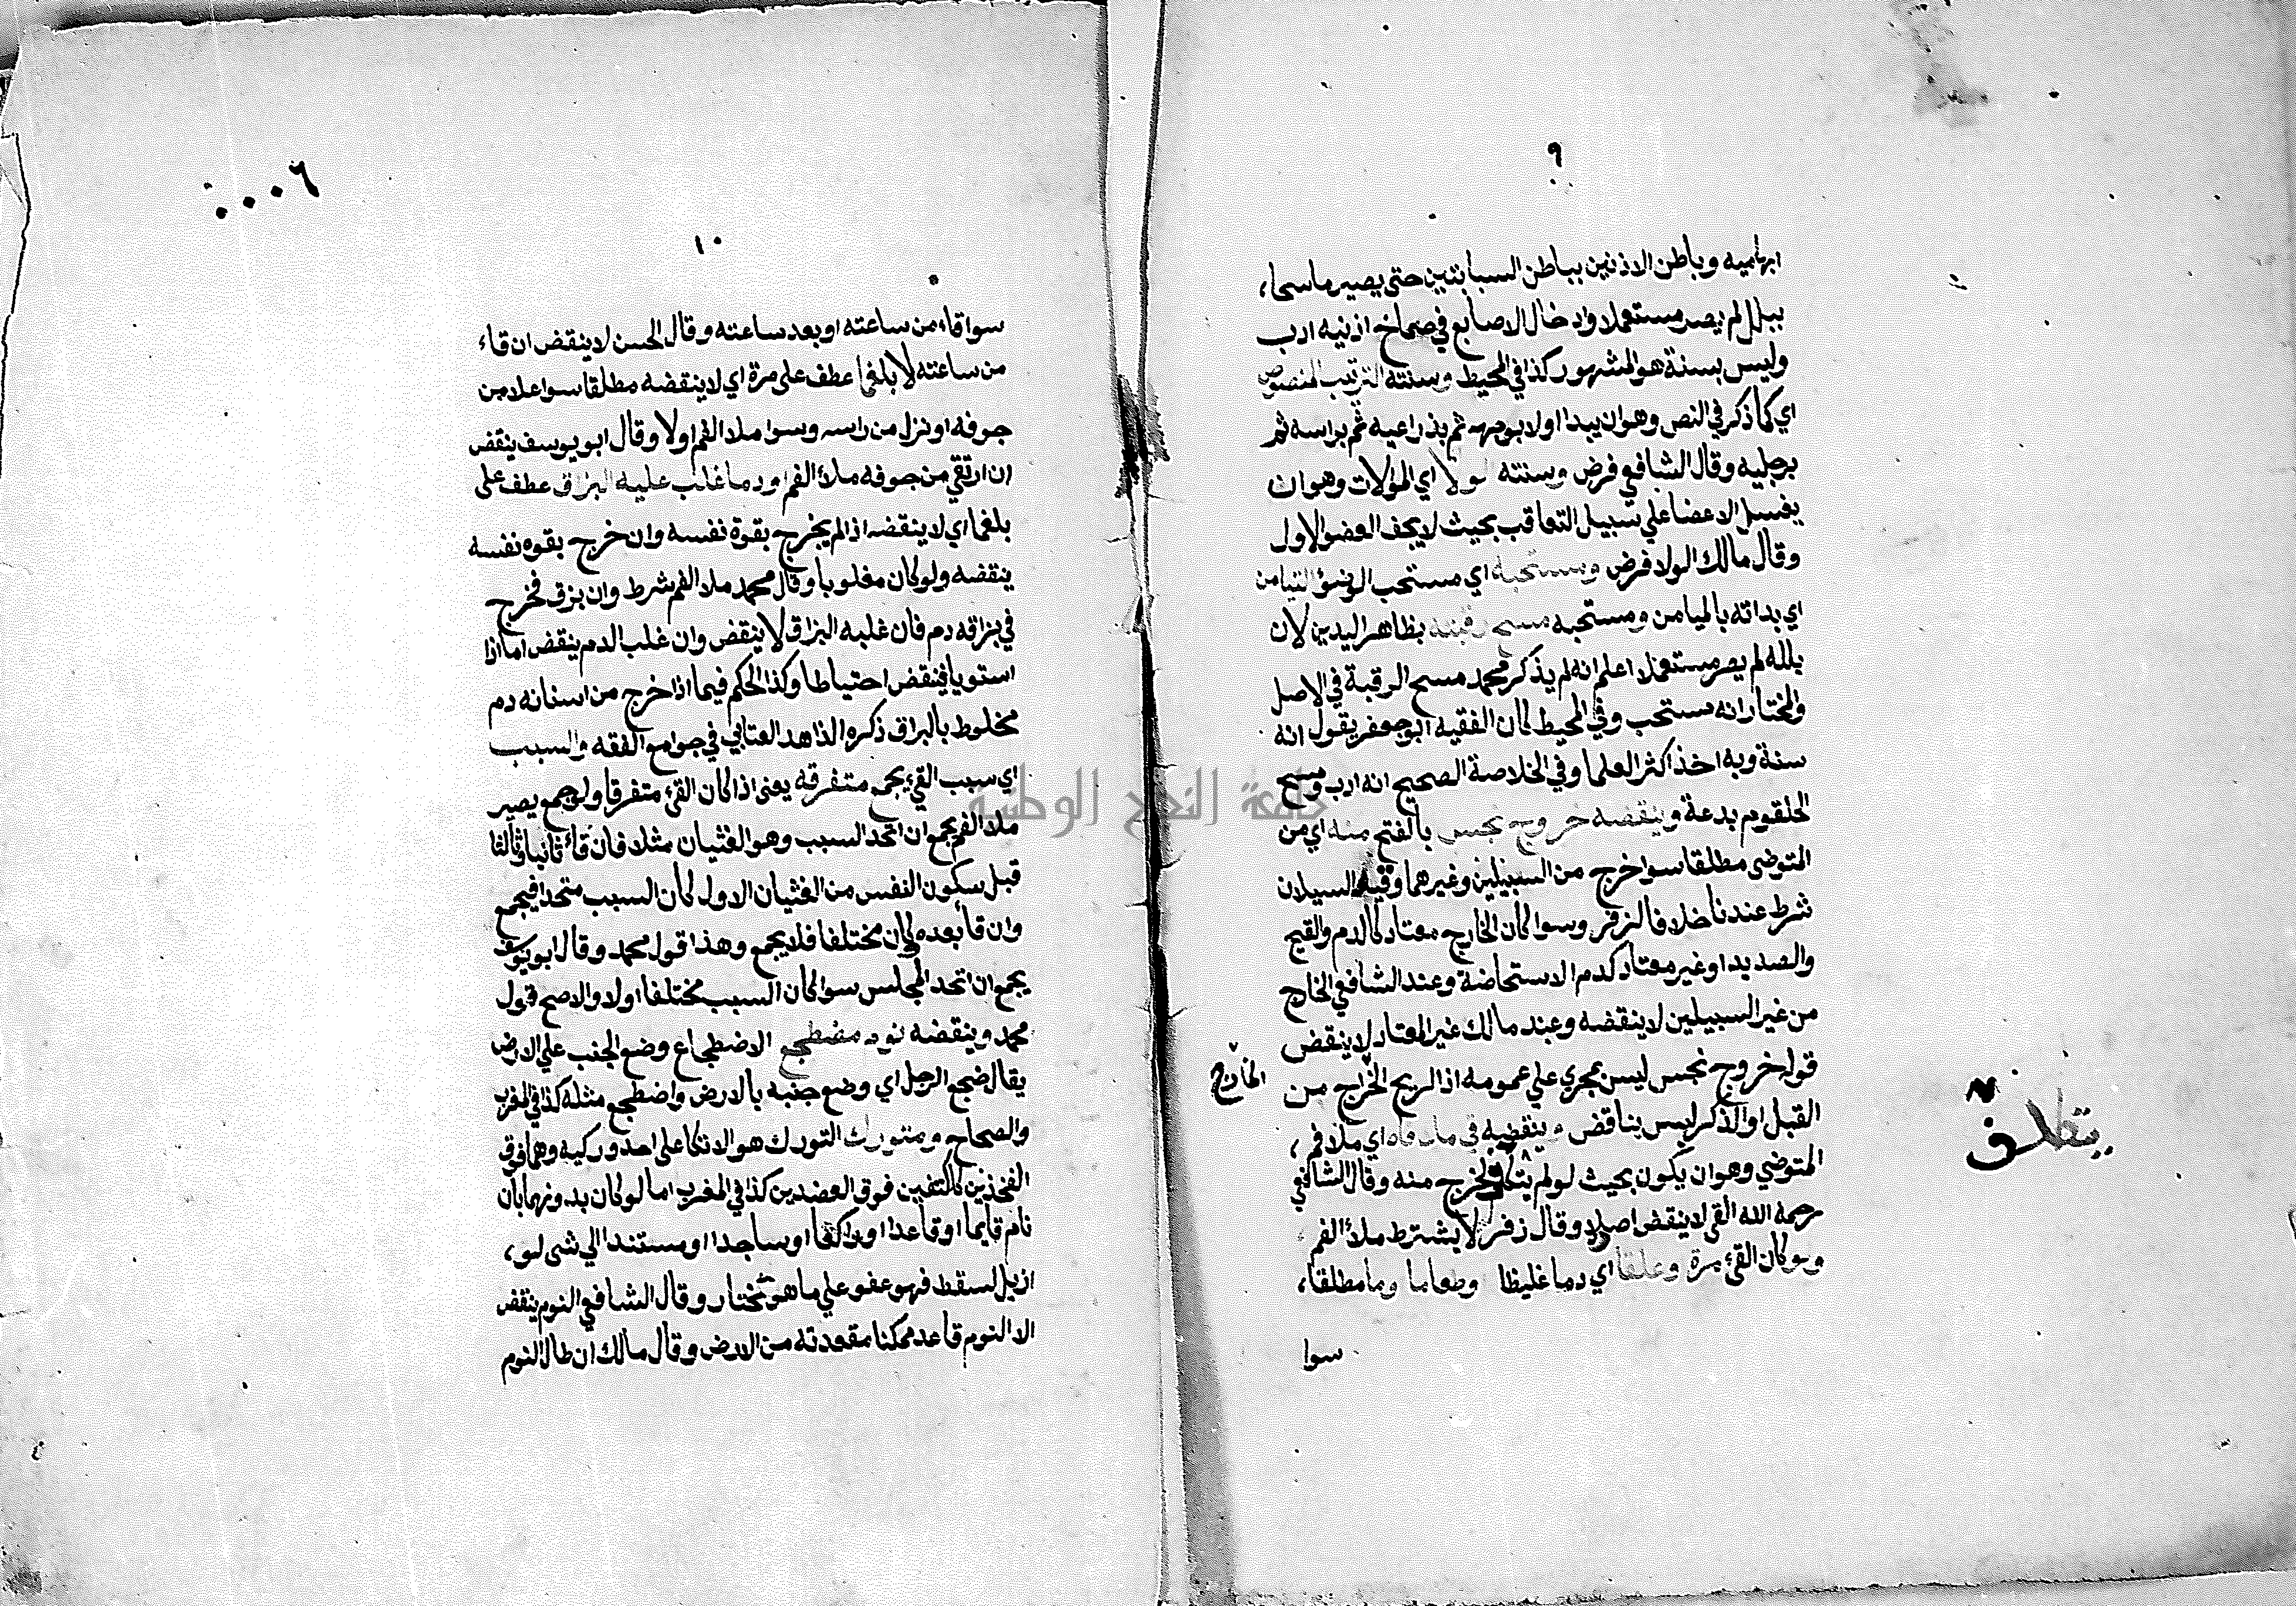 ٩
ابهاميه وباطن الاذنين بباطن السبابتين حتى يصير ماسحا
ببلل لم يصر مستعملا وادخال الاصابع في صماخ اذنيه ادب
وليس بسنة هو المشهور كذا في المحيط وسنته الترتيب المنصوص
اي كما ذكر في النص وهو ان يبدا اولا بوجهه ثم بذراعيه ثم براسه ثم
برجليه وقال الشافعي فرض وسنته الولا اي الموالات وهو ان
يغسل الاعضا علي سبيل التعاقب بحيث لا يجف العضو الاول
وقال مالك الولا فرض ومستحبه اي مستحب الوضؤ التيامن
اي بداته بالميامن ومستحبه مسح رقبته بظاهر اليدين لان
بلله لم يصر مستعملا اعلم انه لم يذكر محمد مسح الرقبة في الاصل
والمختار انه مستحب وفي المحيط كان الفقيه ابو جعفر يقول انه
سنة وبه اخذ اكثر العلما وفي الخلاصة الصحيح انه ادب ومسح
الحلقوم بدعة وينقضه خروج نجس بالفتح منه اي من
المتوضي مطلقا سوا خرج من السبيلين وغيرهما وقيد السيلان
شرط عندنا خلافا لزفر وسوا كان الخارج معتاد كالدم والقيح
والصديد او غير معتاد كدم الاستحاضة وعند الشافعي الخارج
من غير السبيلين لا ينقضه وعند مالك غير المعتاد لا ينقض
قوله خروج نجس ليس بمجري علي عمومه اذ الريح الخارج من
الخارج
القبل او الذكر ليس بناقض وينقضه قي ملا فاه اي ملا فم
المتوضي وهو ان يكون بحيث لو لم يتكلف لخرج منه وقال الشافعي
يتكلف
رحمه الله القي لا ينقض اصلا وقال زفر لا يشترط ملأ الفم
ولو كان القئ مرة وعلقا اي دما غليظا وطعاما وما مطلقا
سوا
٦٠٠٠
١٠
سوا قاء من ساعته او بعد ساعته وقال الحسن لا ينقض ان قاء
من ساعته لا بلغما عطف على مرة اي لا ينقضه مطلقا سوا علا من
جوفه او نزل من راسه وسوا ملا الفم او لا وقال ابو يوسف ينقض
ان ارتقي من جوفه ملأ الفم او دما غلب عليه البزاق عطف على
بلغما اي لا ينقضه اذا لم يخرج بقوة نفسه وان خرج بقوه نفسه
ينقضه ولو كان مغلوبا وقال محمد ملا الفم شرط وان بزق فخرج
في بزاقه دم فان غلبه البزاق لا ينقض وان غلب الدم ينقض اما اذا
استويا فينقض احتياطا وكذا الحكم فيما اذا خرج من اسنانه دم
مخلوط بالبزاق ذكره الذاهد العتابي في جوامع الفقه والسبب
اي سبب القيء يجمع متفرقه يعني اذا كان القئ متفرقا ولو جمع يصير
ملا الفم يجمع ان اتحد السبب وهو الغثيان مثلا فان قاء ثانيا وثالثا
قبل سكون النفس من الغثيان الاول كان السبب متحدا فيجمع
وان قا بعده كان مختلفا فلا يجمع وهذا قول محمد وقال ابو يوسف
يجمع ان اتحد المجلس سوا كان السبب مختلفا اولا والاصح قول
محمد وينقضه نوم مضطجع الاضطجاع وضع الجنب علي الارض
يقال ضجع الرجل اي وضع جنبه بالارض واضطجع مثله كذا في المغرب
والصحاح ومتورك التورك هو الاتكا على احد وركيه وهما فوق
الفخذين كالكتفين فوق العضدين كذا في المغرب اما لو كان بدونهما بان
نام قايما او قاعدا او راكعا او ساجدا او مستندا الي شي لو
ازيل لسقط فهو عفو علي ما هو مختار وقال الشافعي النوم ينقض
الا النوم قاعد ممكنا مقعدته من الارض وقال مالك ان طال النوم
جامعة النجاح الوطنية